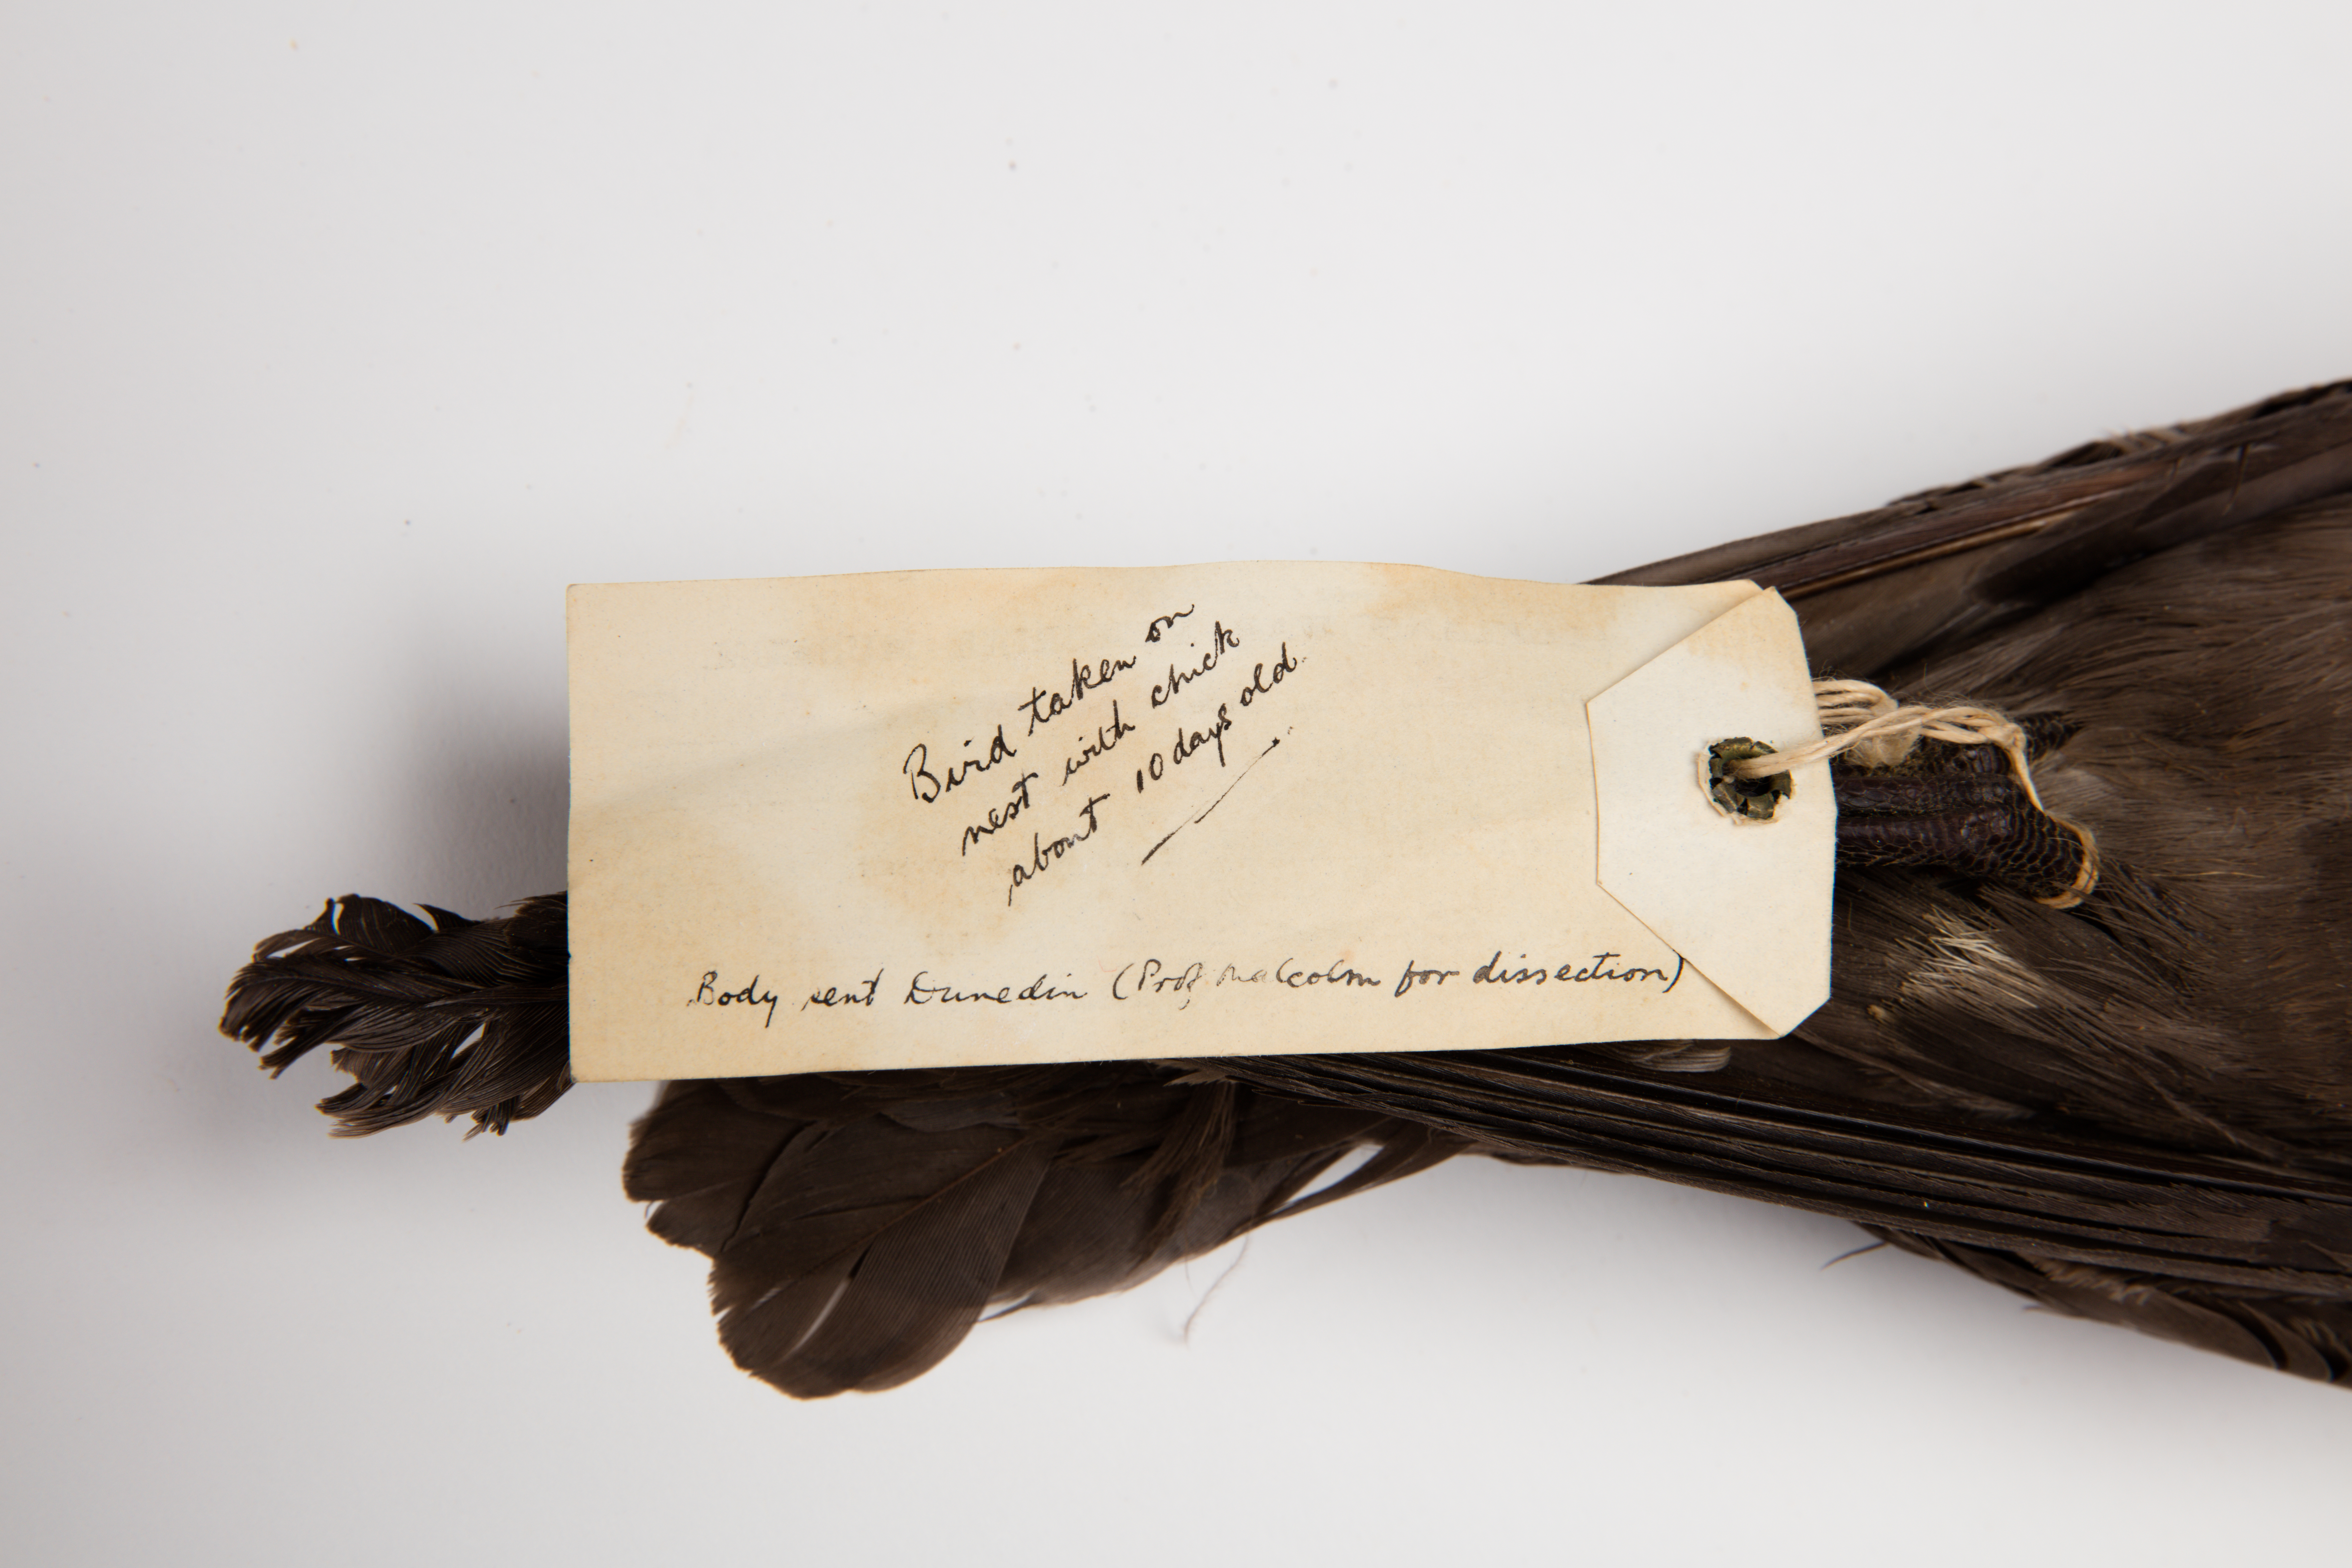 Bird taken on
nest with chick
about 10 days old.
Body sent Dunedin (Prof Malcolm for dissection)